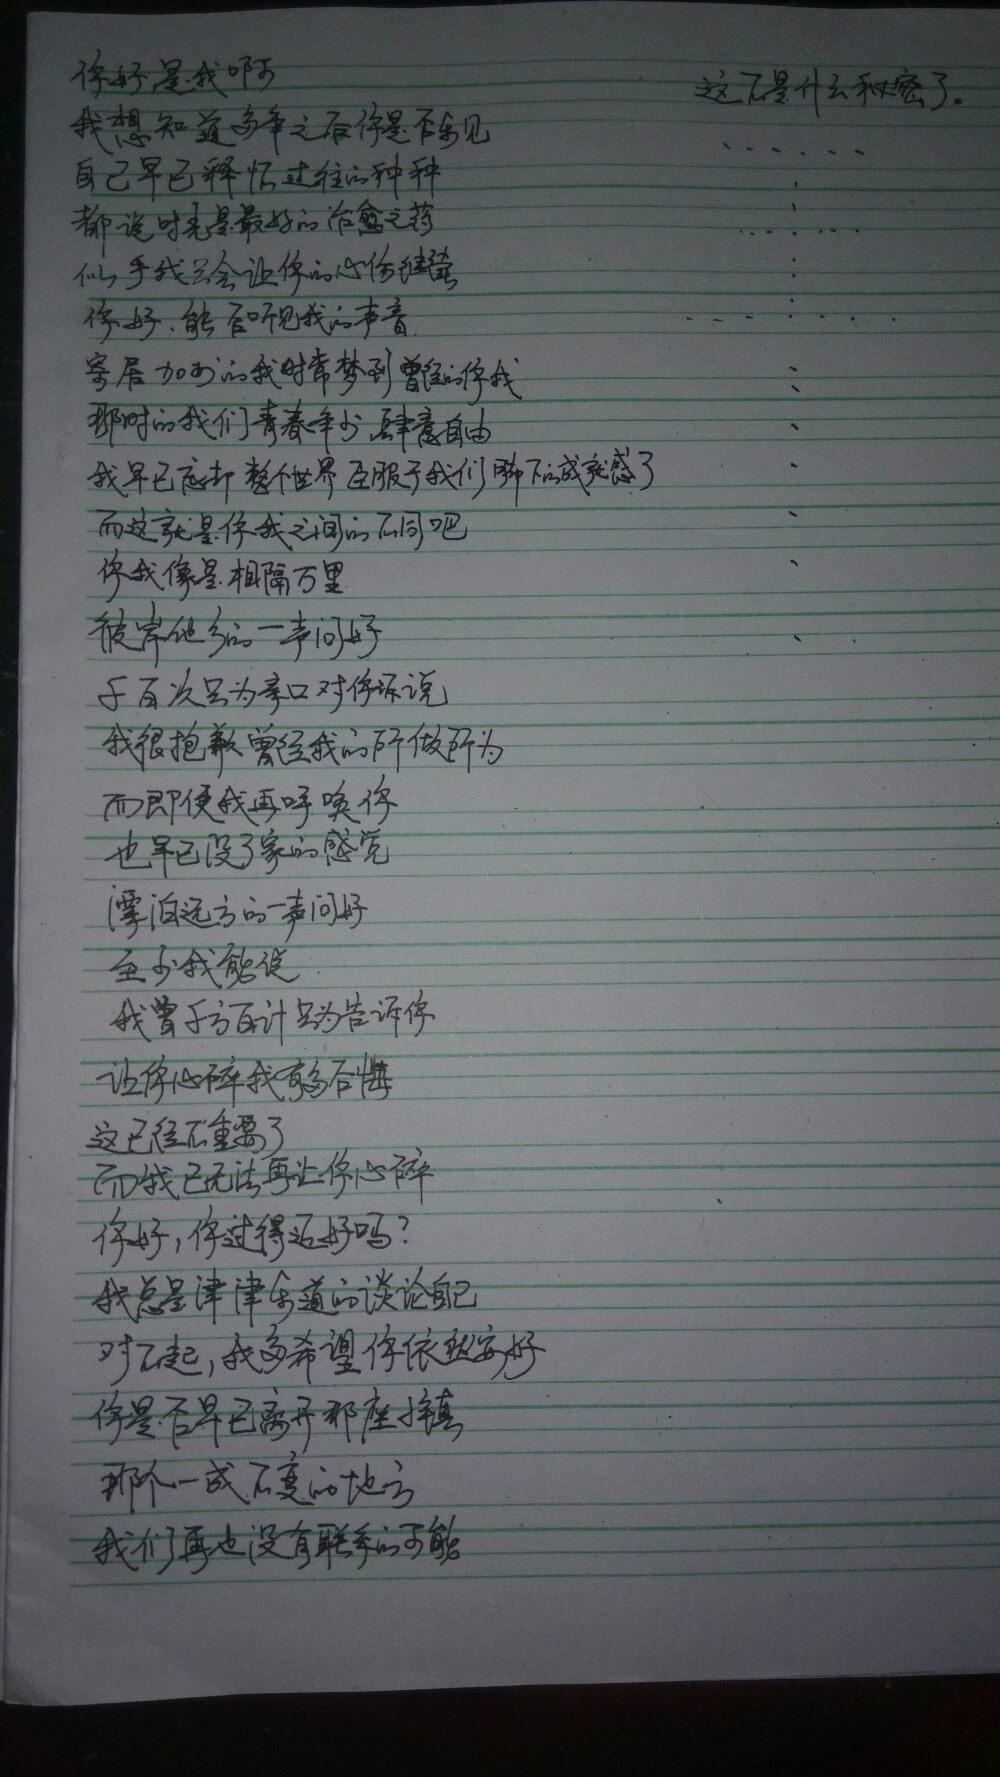 你好是我啊
我想知道多年之后你是否乐见
自己早已释怀过往的种种
都说时光是最好的治愈之药
似乎我只会让你的心伤继续
你好、能否听见我的声音
寄居加州的我时常梦到曾经的你我
那时的我们青春年少肆意自由
我早已忘却整个世界臣服于我们脚下的成就感了
而这就是你我之间的不同吧
你我像是相隔万里
彼岸他乡的一声问好
千百次只为亲口对你诉说
我很抱歉曾经我的所做所为
而即便我再呼唤你
也早已没了家的感觉
漂泊远方的一声问好
至少我能说
我曾千方百计只为告诉你
让你心碎我有多后悔
这已经不重要了
而我已无法再让你心碎
你好，你过得还好吗？
我总是津津乐道的谈论自己
对不起，我多希望你依然安好
你是否早已离开那座镇
那个一成不变的地方
我们再也没有联系的可能
这不是什么秘密了。